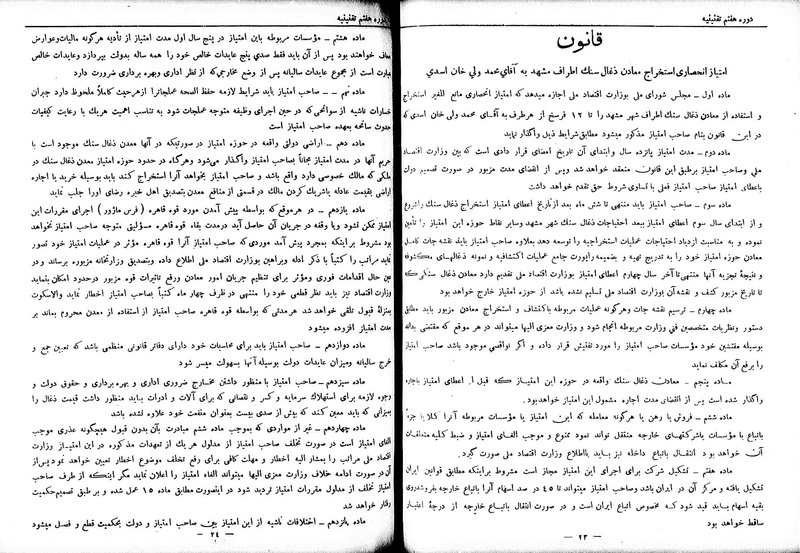 دوره هفتم تقنینیه
قانون
امتیاز انحصاری استخراج معادن ذغال سنك اطراف مشهد به آقای محمد ولی خان اسدی
ماده اول ـ مجلس شورای ملی بوزارت اقتصاد ملی اجازه میدهد که امتیاز انحصاری مانع للغیر استخراج
و استفاده از معادن ذغال سنك اطراف شهر مشهد را تا ۱۲ فرسخ از هر طرف به آقای محمد ولی خان اسدی که
در این قانون بنام صاحب امتیاز مذکور میشود مطابق شرایط ذیل واگذار نماید
ماده دوم ـ مدت امتیاز پانزده سال و ابتدای آن تاریخ امضای قرار دادی است که بین وزارت اقتصاد
ملی و صاحب امتیاز بر طبق این قانون منعقد خواهد شد و پس از انقضای مدت مزبور در صورت تصمیم دولت
باعطای امتیاز صاحب امتیاز فعلی با تساوی شروط حق تقدم خواهد داشت
ماده سوم ـ صاحب امتیاز باید منتهی تا شش ماه بعد از تاریخ اعطای امتیاز استخراج ذغال سنك را شروع
و از ابتدای سال سوم اعطای امتیاز ببعد احتیاجات ذغال سنك شهر مشهد و سایر نقاط حوزه امتیاز را تأمین
نموده و به مناسبت ازدیاد احتیاجات عملیات استخراجیه را توسعه دهد بعلاوه صاحب امتیاز باید نقشه جات کامل
معادن حوزه امتیاز خود را به تدریج تهیه و بضمیمه راپورت جامع عملیات اکتشافیه و نمونه ذغالهای مکشوفه
و نتیجهٔ تجزیه آنها منتهی تا آخر سال چهارم اعطای امتیاز بوزارت اقتصاد ملی تقدیم دارد معادن ذغال سنگی که
تا تاریخ مزبور کشف و نقشه آن بوزارت اقتصاد ملی تسلیم نشده باشد از حوزه امتیاز خارج خواهد بود
ماده چهارم ـ ترسیم نقشه جات و هرگونه عملیات مربوطه باکتشاف و استخراج معادن مزبور باید مطابق
دستور و نظریات متخصصین فنی وزارت مربوطه انجام شود و وزارت معزی الیها میتواند در هر موقع که مقتضی بداند
بوسیله مفتشین خود مؤسسات صاحب امتیاز را مورد تفتیش قرار داده و اگر نواقصی موجود باشد صاحب امتیاز
را برفع آن مکلف نماید
ماده پنجم ـ معادن ذغال سنك واقعه در حوزه این امتیاز که قبل از اعطای امتیاز باجاره
واگذار شده است پس از انقضای مدت اجاره مشمول این امتیاز خواهد بود.
ماده ششم ـ فروش یا رهن یا هرگونه معامله که این امتیاز یا مؤسسات مربوطه آنرا کلا یا جزءً
باتباع یا مؤسسات یا شرکتهای خارجه منتقل تواند نمود ممنوع و موجب الغای امتیاز و ضبط کلیه متعلقات
آن خواهد بود انتقال باتباع داخله نیز باید با اطلاع وزارت اقتصاد ملی صورت گیرد.
ماده هفتم ـ تشکیل شرکت برای اجرای این امتیاز مجاز است مشروط بر اینکه مطابق قوانین ایران
تشکیل یافته و مرکز آن در ایران باشد و صاحب امتیاز میتواند تا ۴۵ در صد اسهام آنرا باتباع خارجه بفروشد و روی
بقیه اسهام باید قید شود که مخصوص اتباع ایران است و در صورت انتقال باتباع خارجه از درجهٔ اعتبار
ساقط خواهد بود
ـ ۲۳ ـ
دوره هفتم تقنینیه
ماده هشتم ـ مؤسسات مربوطه باین امتیاز در پنج سال اول مدت امتیاز از تأدیه هرگونه مالیات و عوارض
معاف خواهند بود پس از آن باید فقط صدی پنج عایدات خالص خود را همه ساله بدولت بپردازد و عایدات خالص
عبارت است از مجموع عایدات سالیانه پس از وضع مخارجی که از نظر اداری و بهره برداری ضرورت دارد
ماده نهم ـ صاحب امتیاز باید شرایط لازمه حفظ الصحه عملجات را از هر حیث کاملاً ملحوظ دارد جبران
خسارات ناشیه از سوانحی که در حین اجرای وظیفه متوجه عملجات شود به تناسب اهمیت هریك با رعایت کیفیات
حدوث سانحه بعهده صاحب امتیاز است
ماده دهم ـ اراضی دولتی واقعه در حوزه امتیاز در صورتیکه در آنها معدن ذغال سنك موجود است با
حریم آنها در مدت امتیاز مجاناً بصاحب امتیاز واگذار می‌شود و هرگاه در حدود حوزه امتیاز معدن ذغال سنك در
ملکی که مالك خصوصی دارد واقع باشد و صاحب امتیاز بخواهد آنرا استخراج کند باید بوسیله خرید یا اجاره
اراضی بقیمت عادله یا شریك کردن مالك در قسمتی از منافع معدن بتصدیق اهل خبره رضای او را جلب نماید
ماده یازدهم ـ در هر موقع که بواسطه پیش آمدن مورد قوه قاهره ( فرس ماژور ) اجرای مقررات این
امتیاز ممکن نشود و یا وقفه در جریان آن حاصل آید در مدت بقاء قوه قاهره مسئولیتی متوجه صاحب امتیاز نخواهد
بود مشروط بر اینکه بمجرد پیش آمد موردی که صاحب امتیاز آنرا قوه قاهره مؤثر در عملیات امتیاز خود تصور
نماید مراتب را کتباً با ذکر ادله و براهین بوزارت اقتصاد ملی اطلاع داده و بتصدیق وزارتخانه مزبوره برساند و در
عین حال اقدامات فوری و مؤثر برای تنظیم جریان امور معادن و رفع تاثیرات قوه مزبور در حدود امکان بنماید
وزارت اقتصاد نیز باید نظر قطعی خود را منتهی در ظرف چهار ماه کتباً بصاحب امتیاز اخطار نماید والا سکوت
بمنزلهٔ قبول تلقی خواهد شد هر مدتی که بواسطه قوه قاهره صاحب امتیاز از استفاده از معدن محروم بماند بر
مدت امتیاز افزوده میشود
ماده دوازدهم ـ صاحب امتیاز باید برای محاسبات خود دارای دفاتر قانونی منظمی باشد که تعیین جمع و
خرج سالیانه و میزان عایدات دولت بوسیله آنها بسهولت میسر شود
ماده سیزدهم ـ صاحب امتیاز با منظور داشتن مخارج ضروری اداری و بهره برداری و حقوق دولت و
وجوه لازمه برای استهلاك سرمایه و کسر و نقصانی که برای آلات و ادوات باید منظور داشت قیمت ذغال را
بمیزانی که باید معین کند که بیش از صدی بیست بعنوان منفعت خود علاوه نشده باشد
ماده چهاردهم ـ غیر از مواردی که بموجب ماده ششم مبادرت بآن بدون قبول هیچگونه عذری موجب
الغای امتیاز است در صورت تخلف صاحب امتیاز از مدلول هر یك از تعهدات مذکوره در این امتیاز وزارت
اقتصاد ملی مراتب را بمشار الیه اخطار و مهلت کافی برای رفع تخلف موضوع اخطار تعیین خواهد نمود پس از
آن در صورت ادامه خلاف وزارت معزی الیها میتواند الغاء امتیاز را اعلان نماید مگر اینکه از طرف صاحب
امتیاز تخلف از مدلول مقررات امتیاز تردید شود در اینصورت مطابق ماده ۱۵ عمل شده و بر طبق تصمیم حکمیت
رفتار خواهد شد
ماده پانزدهم ـ اختلافات ناشیه از این امتیاز بین صاحب امتیاز و دولت بحکمیت قطع و فصل میشود
ـ ۲۴ ـ